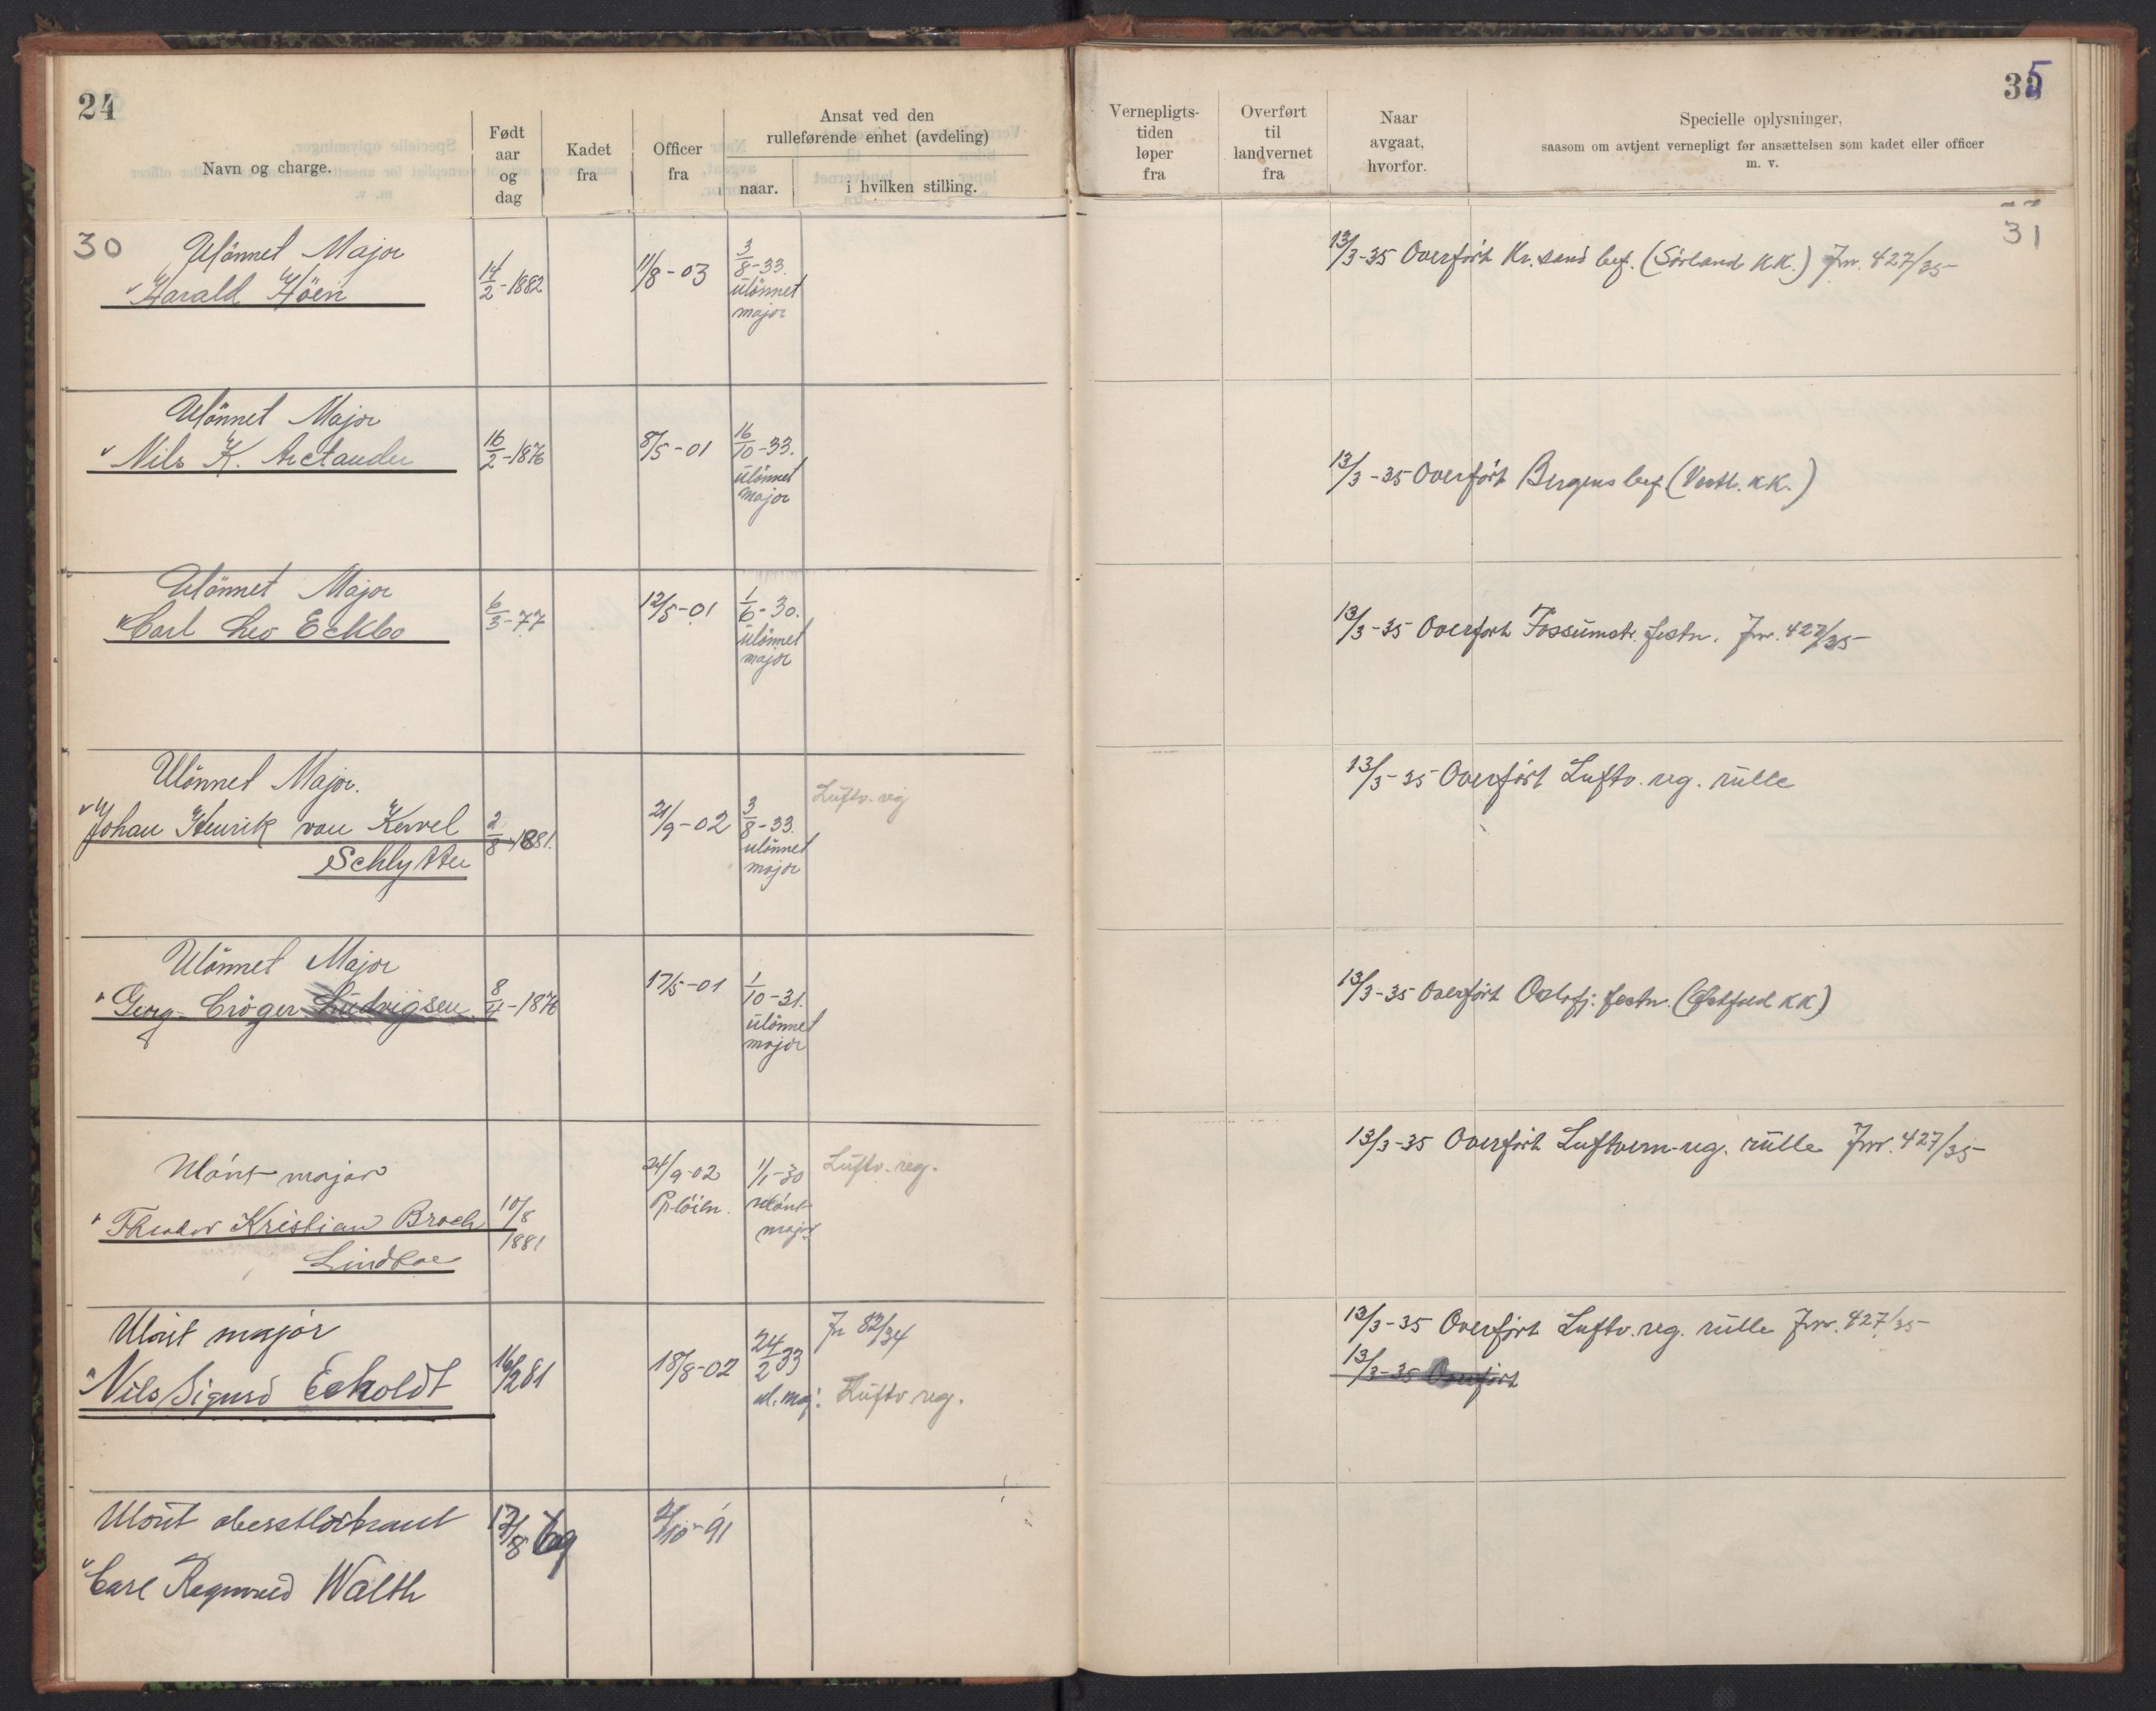 24
Navn og charge.
Født aar og dag
Kadet fra
Officer fra
Ansat ved den rulleførende enhet (avdeling)
naar.
i hvilken stilling.
Vernepligts-tiden løper fra
Overført til landvernet fra
Naar avgaat, hvorfor.
Specielle oplysninger,
saasom om avtjent vernepligt før ansættelsen som kadet eller officer
m. v.
35
30
31
Ulönnet Major
Harald Höen
14/2-1882
11/8-03
3/8-33.
ulönnet
major
13/3-35 Overført Kr.sand bef. (Sörland KK.) Jnr. 427/35
Ulönnet Major
Nils K. Arctander
16/2-1876
8/5-01
16/10-33.
ulönnet
major
13/3-35 Overført Bergens bef. (Vestl. KK.)
Ulönnet Major
Carl Leo Eckbo
6/3-77
12/5-01
1/6-30.
ulönnet
major
13/3-35 Overført Fossumstr. festn. Jnr. 427/35
Ulönnet Major.
Johan Henrik van Kervel
Schlytter
2/8-1881.
21/9-02
3/8-33.
ulönnet
major
Luftv. reg
13/3-35 Overført Luftv. reg. rulle
Ulönnet Major
Georg Cröger Ludvigsen
8/4-1876
17/5-01
1/10-31.
ulönnet
major
13/3-35 Overført Oslofj. festn. (Østfold KK)
Ulönt major
Theodor Kristian Broch
Lindboe
10/8
1881
24/9-02
Pr.löitn.
1/1-30
ulönt
major
Luftv. reg.
13/3-35 Overført Luftvern-reg. rulle Jnr. 427/35
Ulönt major
Nils Sigurd Eckoldt
16/2 81
18/8-02
24/2 33
ul. maj.
Jr 82/34
Luftv reg.
13/3-35 Overført Luftv. reg. rulle Jnr. 427/35
13/3-35 Overført
Ulönt oberstlöitnant
Carl Ragnvald Walth
69
2/10-91